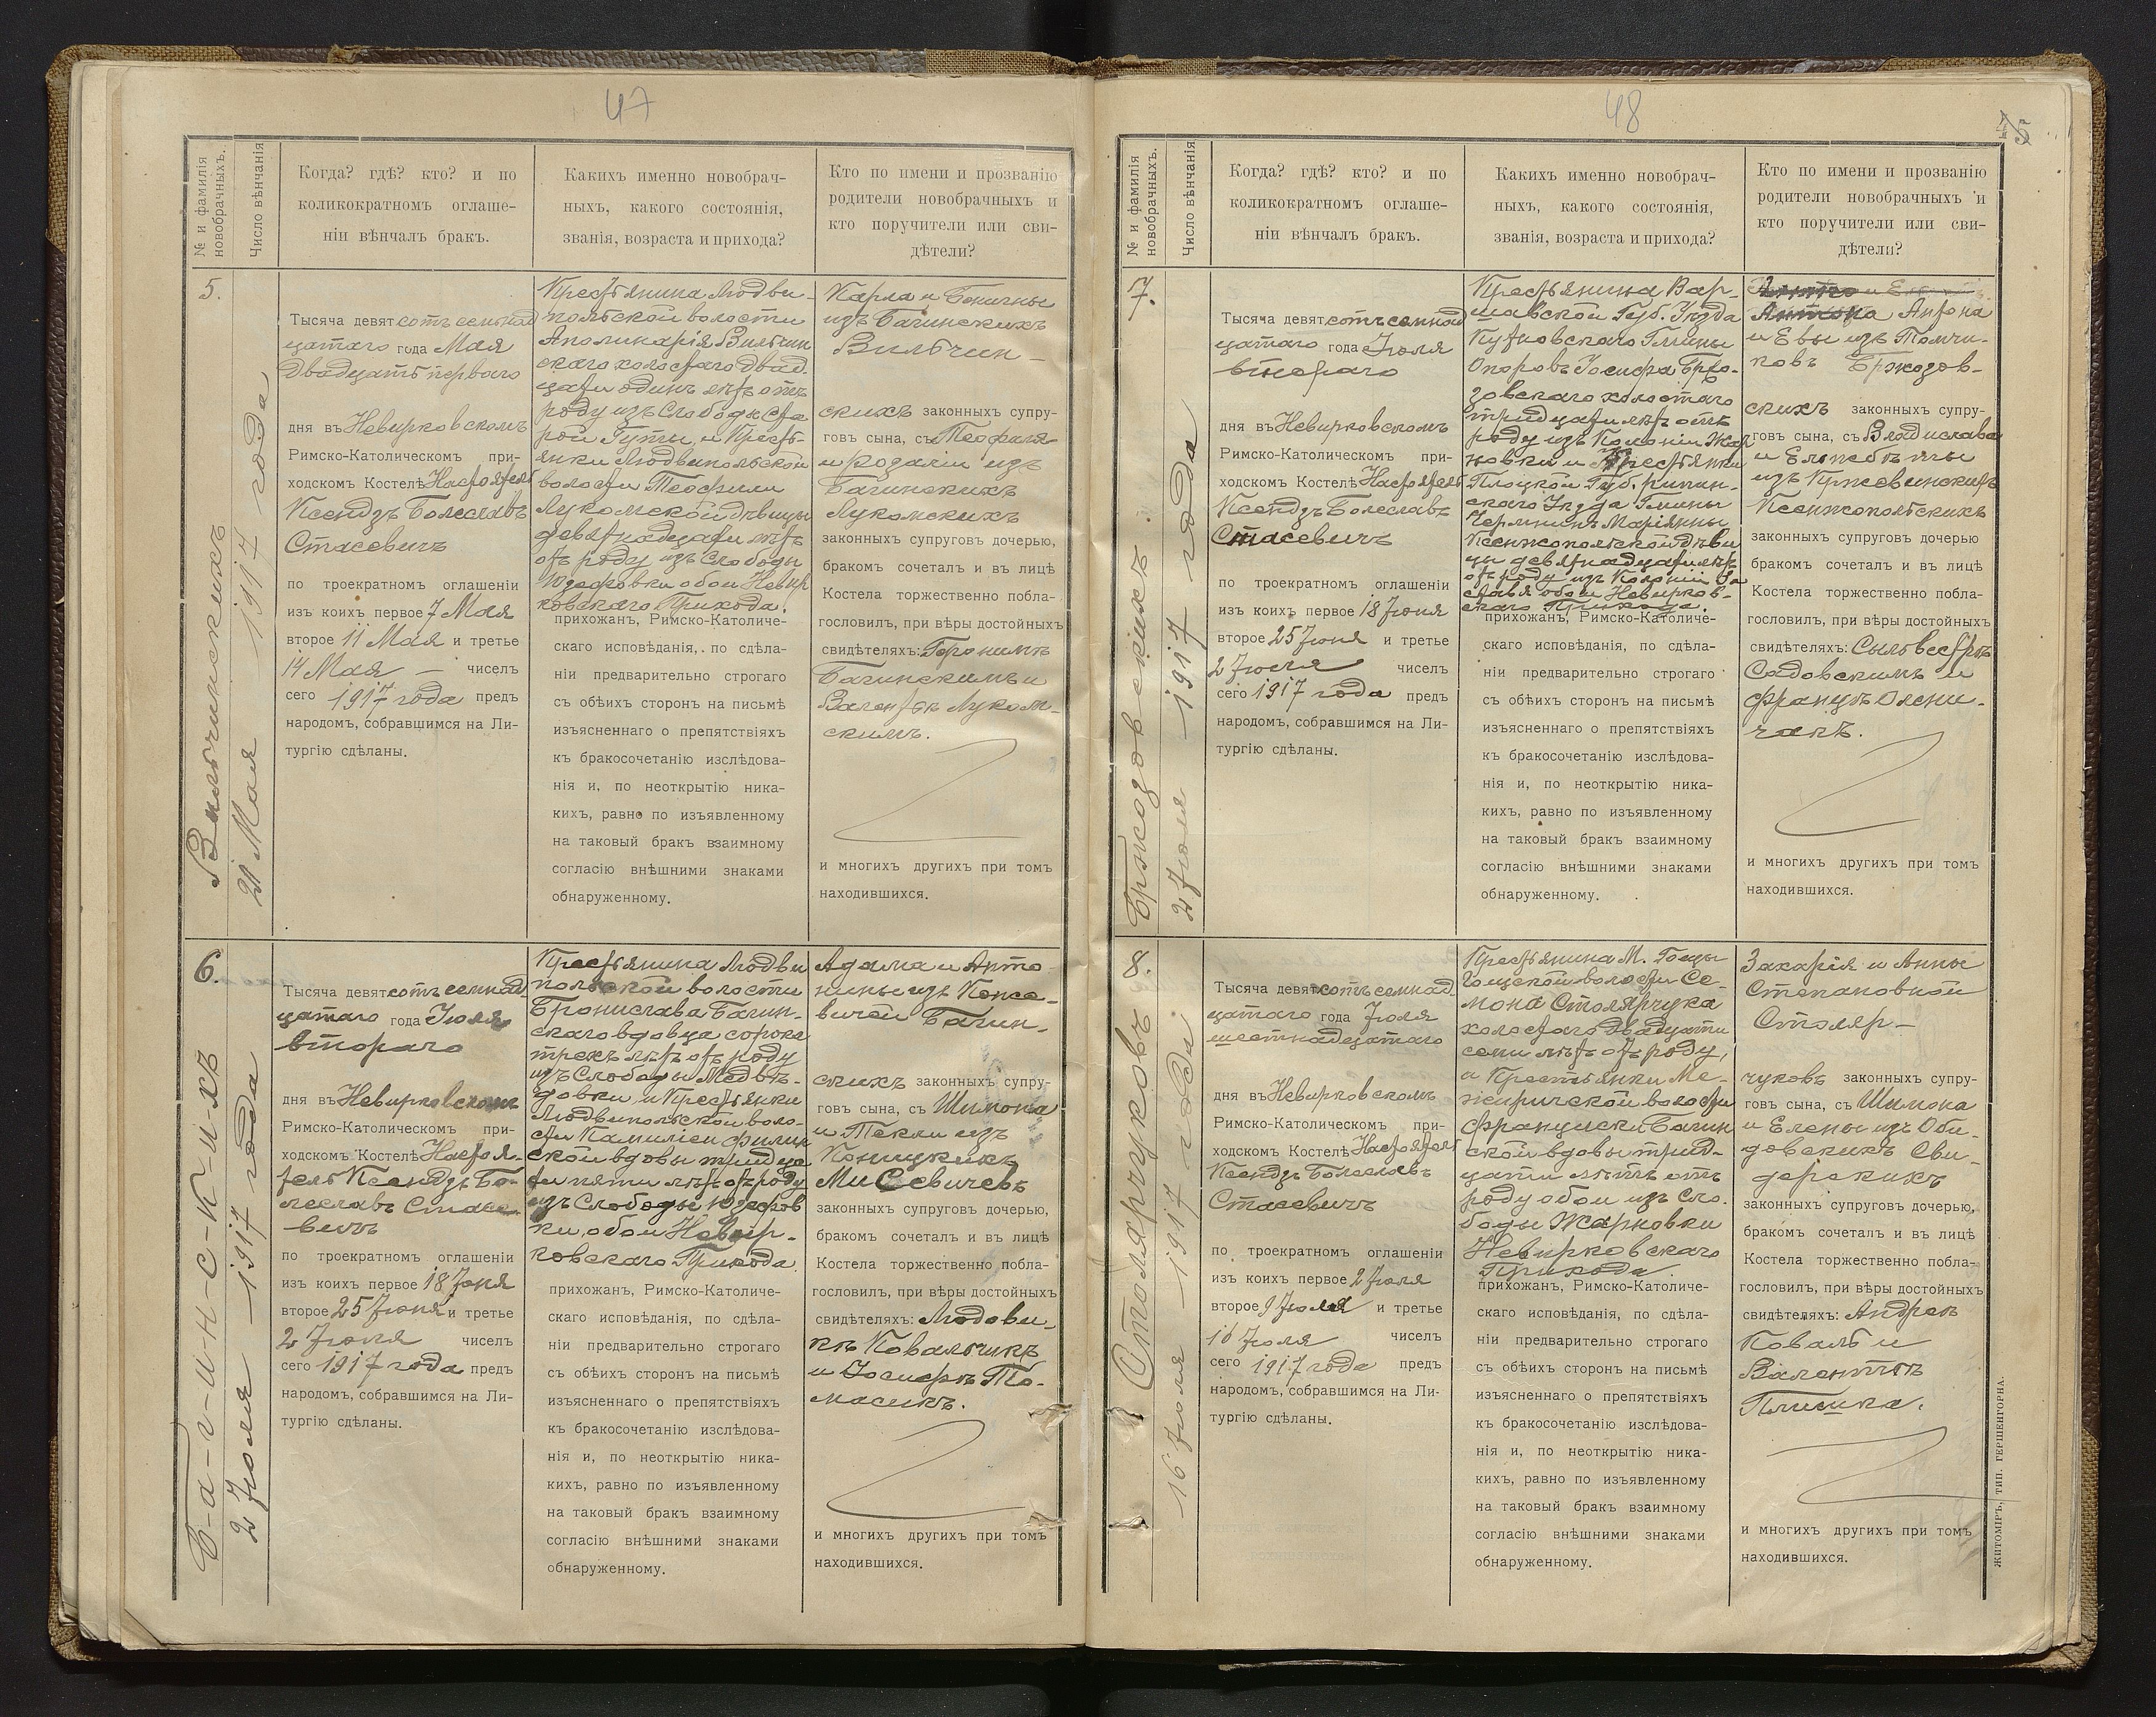 47
№ и фамилія
новобрачныхъ.
Число вѣнчанія
Когда? гдѣ? кто? и по
коликократномъ оглаше-
ніи вѣнчалъ бракъ.
Какихъ именно новобрач-
ныхъ, какого состоянія,
званія, возраста и прихода?
Кто по имени и прозванію
родители новобрачныхъ и
кто поручители или сви-
дѣтели?
5.
Вильчинскихъ
21 Мая 1917 года
Тысяча девятсотъ семнад
цатаго года Мая
двадцать перваго
дня въ Невирковскомъ
Римско-Католическомъ при-
ходскомъ Костелѣ Настоятель
Ксендзъ Болеславъ
Стасевичъ
по троекратномъ оглашеніи
изъ коихъ первое 7 Мая
второе 11 Мая и третье
14 Мая — чиселъ
сего 1917 года предъ
народомъ, собравшимся на Ли-
тургію сдѣланы.
Крестьянина Людви-
польской волости
Аполинарія Вильчин
скаго холостаго двад-
цати одинъ лѣтъ отъ
роду изъ Слободы Ста
рой Гуты, и Кресть-
янки Людвипольской
волости Теофили
Лукомской дѣвицы
девятнадцати лѣтъ
отъ роду изъ Слободы
Юзефовки обои Невир
ковскаго Прихода.
прихожанъ, Римско-Католиче-
скаго исповѣданія, по сдѣла-
ніи предварительно строгаго
съ обѣихъ сторонъ на письмѣ
изъясненнаго о препятствіяхъ
къ бракосочетанію изслѣдова-
нія и, по неоткрытію ника-
кихъ, равно по изъявленному
на таковый бракъ взаимному
согласію внѣшними знаками
обнаруженному.
Карла и
изъ Багинскихъ
Вильчин-
скихъ законныхъ супру-
говъ сына, съ Теофиля
и Розаліи изъ
Багинскихъ
Лукомскихъ
законныхъ супруговъ дочерью,
бракомъ сочеталъ и въ лицѣ
Костела торжественно побла-
гословилъ, при вѣры достойныхъ
свидѣтеляхъ: Геронимъ
Багинскимъ и
Валентѣ Луком-
скимъ.
и многихъ другихъ при томъ
находившихся.
6.
Б-а-г-и-н-с-к-и-хъ
2 Іюля 1917 года
Тысяча девятсотъ семнад
цатаго года Іюля
втораго
дня въ Невирковскомъ
Римско-Католическомъ при-
ходскомъ Костелѣ Настоя-
тель Ксендзъ Бо-
леславъ Стасе-
вичъ
по троекратномъ оглашеніи
изъ коихъ первое 18 Іюня
второе 25 Іюня и третье
2 Іюля чиселъ
сего 1917 года предъ
народомъ, собравшимся на Ли-
тургію сдѣланы.
Крестьянина Людви
польской волости
Бронислава Багин-
скаго вдовца сорока
трехъ лѣтъ отъ роду
изъ Слободы Медвѣ-
довки, и Крестьянки
Людвипольской воло-
сти Камиліи
ской вдовы тридца
ти пяти лѣтъ отъ роду
изъ Слободы Юзефов
ки, обои Невир-
ковскаго Прихода.
прихожанъ, Римско-Католиче-
скаго исповѣданія, по сдѣла-
ніи предварительно строгаго
съ обѣихъ сторонъ на письмѣ
изъясненнаго о препятствіяхъ
къ бракосочетанію изслѣдова-
нія и, по неоткрытію ника-
кихъ, равно по изъявленному
на таковый бракъ взаимному
согласію внѣшними знаками
обнаруженному.
Адама и Анто-
нины изъ
Багин-
скихъ законныхъ супру-
говъ сына, съ Шимона
и Текли изъ
Коницкихъ
Мисевичевъ
законныхъ супруговъ дочерью,
бракомъ сочеталъ и въ лицѣ
Костела торжественно побла-
гословилъ, при вѣры достойныхъ
свидѣтеляхъ: Людови-
кѣ Ковальчикъ
и Іосифѣ То-
масикъ.
и многихъ другихъ при томъ
находившихся.
48
75
№ и фамилія
новобрачныхъ.
Число вѣнчанія
Когда? гдѣ? кто? и по
коликократномъ оглаше-
ніи вѣнчалъ бракъ.
Какихъ именно новобрач-
ныхъ, какого состоянія,
званія, возраста и прихода?
Кто по имени и прозванію
родители новобрачныхъ и
кто поручители или сви-
дѣтели?
7.
Бржозовскихъ
2 Іюля 1917 года
Тысяча девятсотъ семнад
цатаго года Іюля
втораго
дня въ Невирковскомъ
Римско-Католическомъ при-
ходскомъ Костелѣ Настоятель
Ксендзъ Болеславъ
Стасевичъ
по троекратномъ оглашеніи
изъ коихъ первое 18 Іюня
второе 25 Іюня и третье
2 Іюля чиселъ
сего 1917 года предъ
народомъ, собравшимся на Ли-
тургію сдѣланы.
Крестьянина Вар-
шавской Губ. Уѣзда
Кутновскаго Гмины
Опоровъ Іосифа Бржо-
зовскаго холостаго
тридцати лѣтъ отъ
роду изъ Колоніи Жар
новки и Крестьянки
Плоцкой Губ. Рипин-
скаго Уѣзда Гмины
Чермнинъ Маріянны
Ксенжопольской дѣви
цы девятнадцати лѣтъ
отъ роду изъ Колоніи За
славя обои Невирков-
скаго Прихода.
прихожанъ, Римско-Католиче-
скаго исповѣданія, по сдѣла-
ніи предварительно строгаго
съ обѣихъ сторонъ на письмѣ
изъясненнаго о препятствіяхъ
къ бракосочетанію изслѣдова-
нія и, по неоткрытію ника-
кихъ, равно по изъявленному
на таковый бракъ взаимному
согласію внѣшними знаками
обнаруженному.
Антона Антона
и Евы изъ Томчи-
ковъ Бржозов-
скихъ законныхъ супру-
говъ сына, съ Владислава
и Елжбѣты
изъ Кржевинскихъ
Ксенжопольскихъ
законныхъ супруговъ дочерью
бракомъ сочеталъ и въ лицѣ
Костела торжественно побла-
гословилъ, при вѣры достойныхъ
свидѣтеляхъ: Сильвестрѣ
Садовскимъ и
Францѣ Олени-
чакъ.
и многихъ другихъ при томъ
находившихся.
8.
Столярчуковъ
16 Іюля 1917 года
Тысяча девятсотъ семнад
цатаго года Іюля
шестнадцатаго
дня въ Невирковскомъ
Римско-Католическомъ при-
ходскомъ Костелѣ Настоятель
Ксендзъ Болеславъ
Стасевичъ
по троекратномъ оглашеніи
изъ коихъ первое 2 Іюля
второе 9 Іюля и третье
16 Іюля чиселъ
сего 1917 года предъ
народомъ, собравшимся на Ли-
тургію сдѣланы.
Крестьянина М. Гощы
Гощской волости Се-
мона Столярчука
холостаго двадцати
семи лѣтъ отъ роду,
и Крестьянки Ме-
жиричской волости
Францишки Багин
ской вдовы трид-
цати лѣтъ отъ
роду обои изъ Сло-
боды Жарновки
Невирковскаго
Прихода.
прихожанъ, Римско-Католиче-
скаго исповѣданія, по сдѣла-
ніи предварительно строгаго
съ обѣихъ сторонъ на письмѣ
изъясненнаго о препятствіяхъ
къ бракосочетанію изслѣдова-
нія и, по неоткрытію ника-
кихъ, равно по изъявленному
на таковый бракъ взаимному
согласію внѣшними знаками
обнаруженному.
Захарія и Анны
Степановной
Столяр-
чуковъ законныхъ супру-
говъ сына, съ Шимона
и Елены изъ Оби-
довскихъ Сви-
дерскихъ
законныхъ супруговъ дочерью,
бракомъ сочеталъ и въ лицѣ
Костела торжественно побла-
гословилъ, при вѣры достойныхъ
свидѣтеляхъ: Андрей
Коваль и
Валентѣ
Плишка.
и многихъ другихъ при томъ
находившихся.
ЖИТОМІРЪ, ТИП. ГЕРШЕНГОРНА.